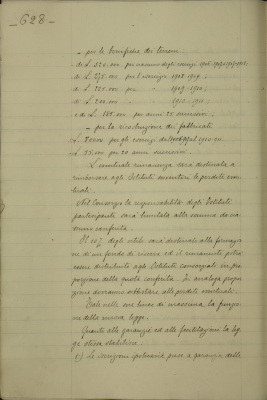 - 628 -
- per le bonifiche dei terreni:
di L. 325.000 per ciascuno degli esercizi
di L. 275.000 per l'esercizio 1908-1909;
di L. 225.000 per " 1909-1910;
di L. 200.000 " 1910-1911;
e di L. 185.000 per anni 25 successivi;
- per la ricostruzione dei fabbricati
L. per gli esercizi
L. 25.000 per 20 anni successivi.
L'eventuale rimanenza sarà destinata a
rimborsare agli Istituti mutuanti le perdite even-
tuali.
Nel Consorzio la responsabilità degli Istituti
partecipanti sarà limitata alle somme da cia-
scuno conferite.
Il 10% degli utili sarà destinato alla formazio-
ne di un fondo di riserva ed il rimanente potrà
essere distribuito agli Istituti consorziati in pro-
porzione della quota conferita. In analoga propor-
zione dovranno sottostare alle perdite eventuali.
Tale nelle sue linee di massima, la funzio-
ne della nuova legge.
Quanto alle garanzie ed alle facilitazioni la leg-
ge stessa stabilisce:
1) Le iscrizioni ipotecarie prese a garanzia delle